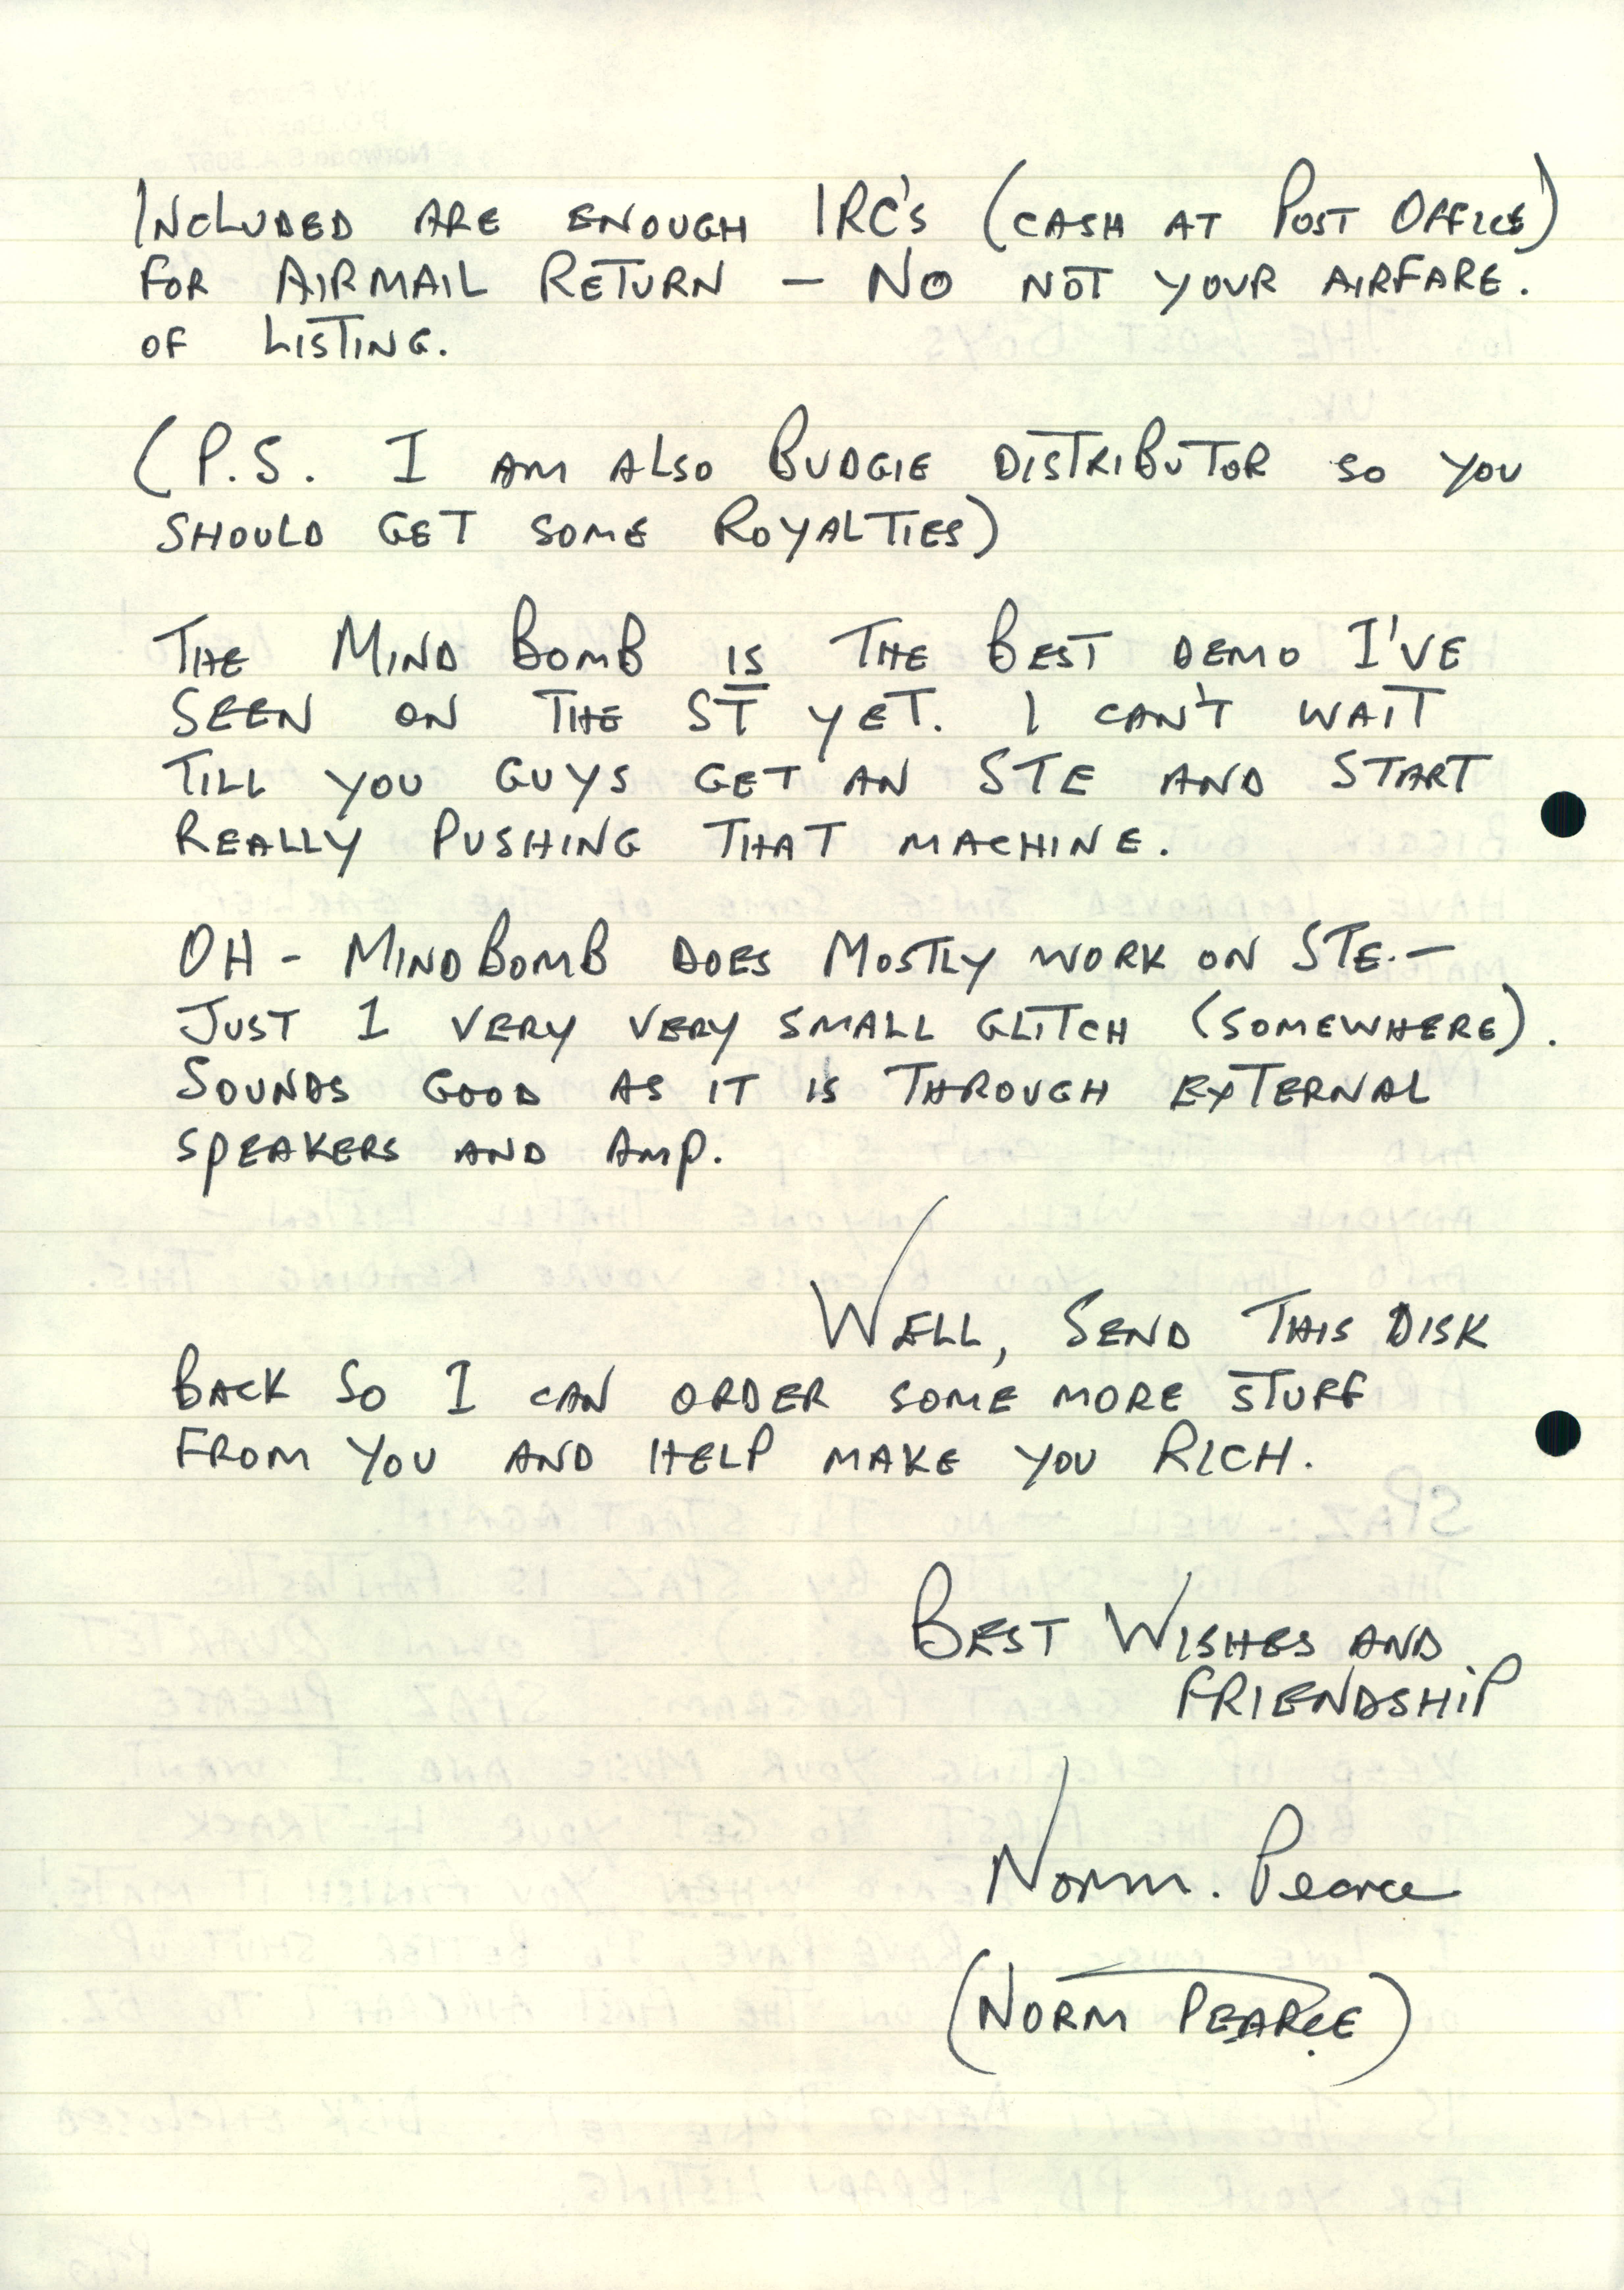 INCLUDED ARE ENOUGH IRC'S (CASH AT POST OFFICE)
FOR AIRMAIL RETURN – NO NOT YOUR AIRFARE.
OF LISTING.
(P.S. I AM ALSO BUDGIE DISTRIBUTOR SO YOU
SHOULD GET SOME ROYALTIES)
THE MIND BOMB IS THE BEST DEMO I'VE
SEEN ON THE ST YET. I CAN'T WAIT
TILL YOU GUYS GET AN STE AND START
REALLY PUSHING THAT MACHINE.
OH - MINDBOMB DOES MOSTLY WORK ON STE.–
JUST 1 VERY VERY SMALL GLITCH (SOMEWHERE).
SOUNDS GOOD AS IT IS THROUGH EXTERNAL
SPEAKERS AND AMP.
WELL, SEND THIS DISK
BACK SO I CAN ORDER SOME MORE STUFF
FROM YOU AND HELP MAKE YOU RICH.
BEST WISHES AND
FRIENDSHIP
Norm. Pearce
(NORM PEARCE)